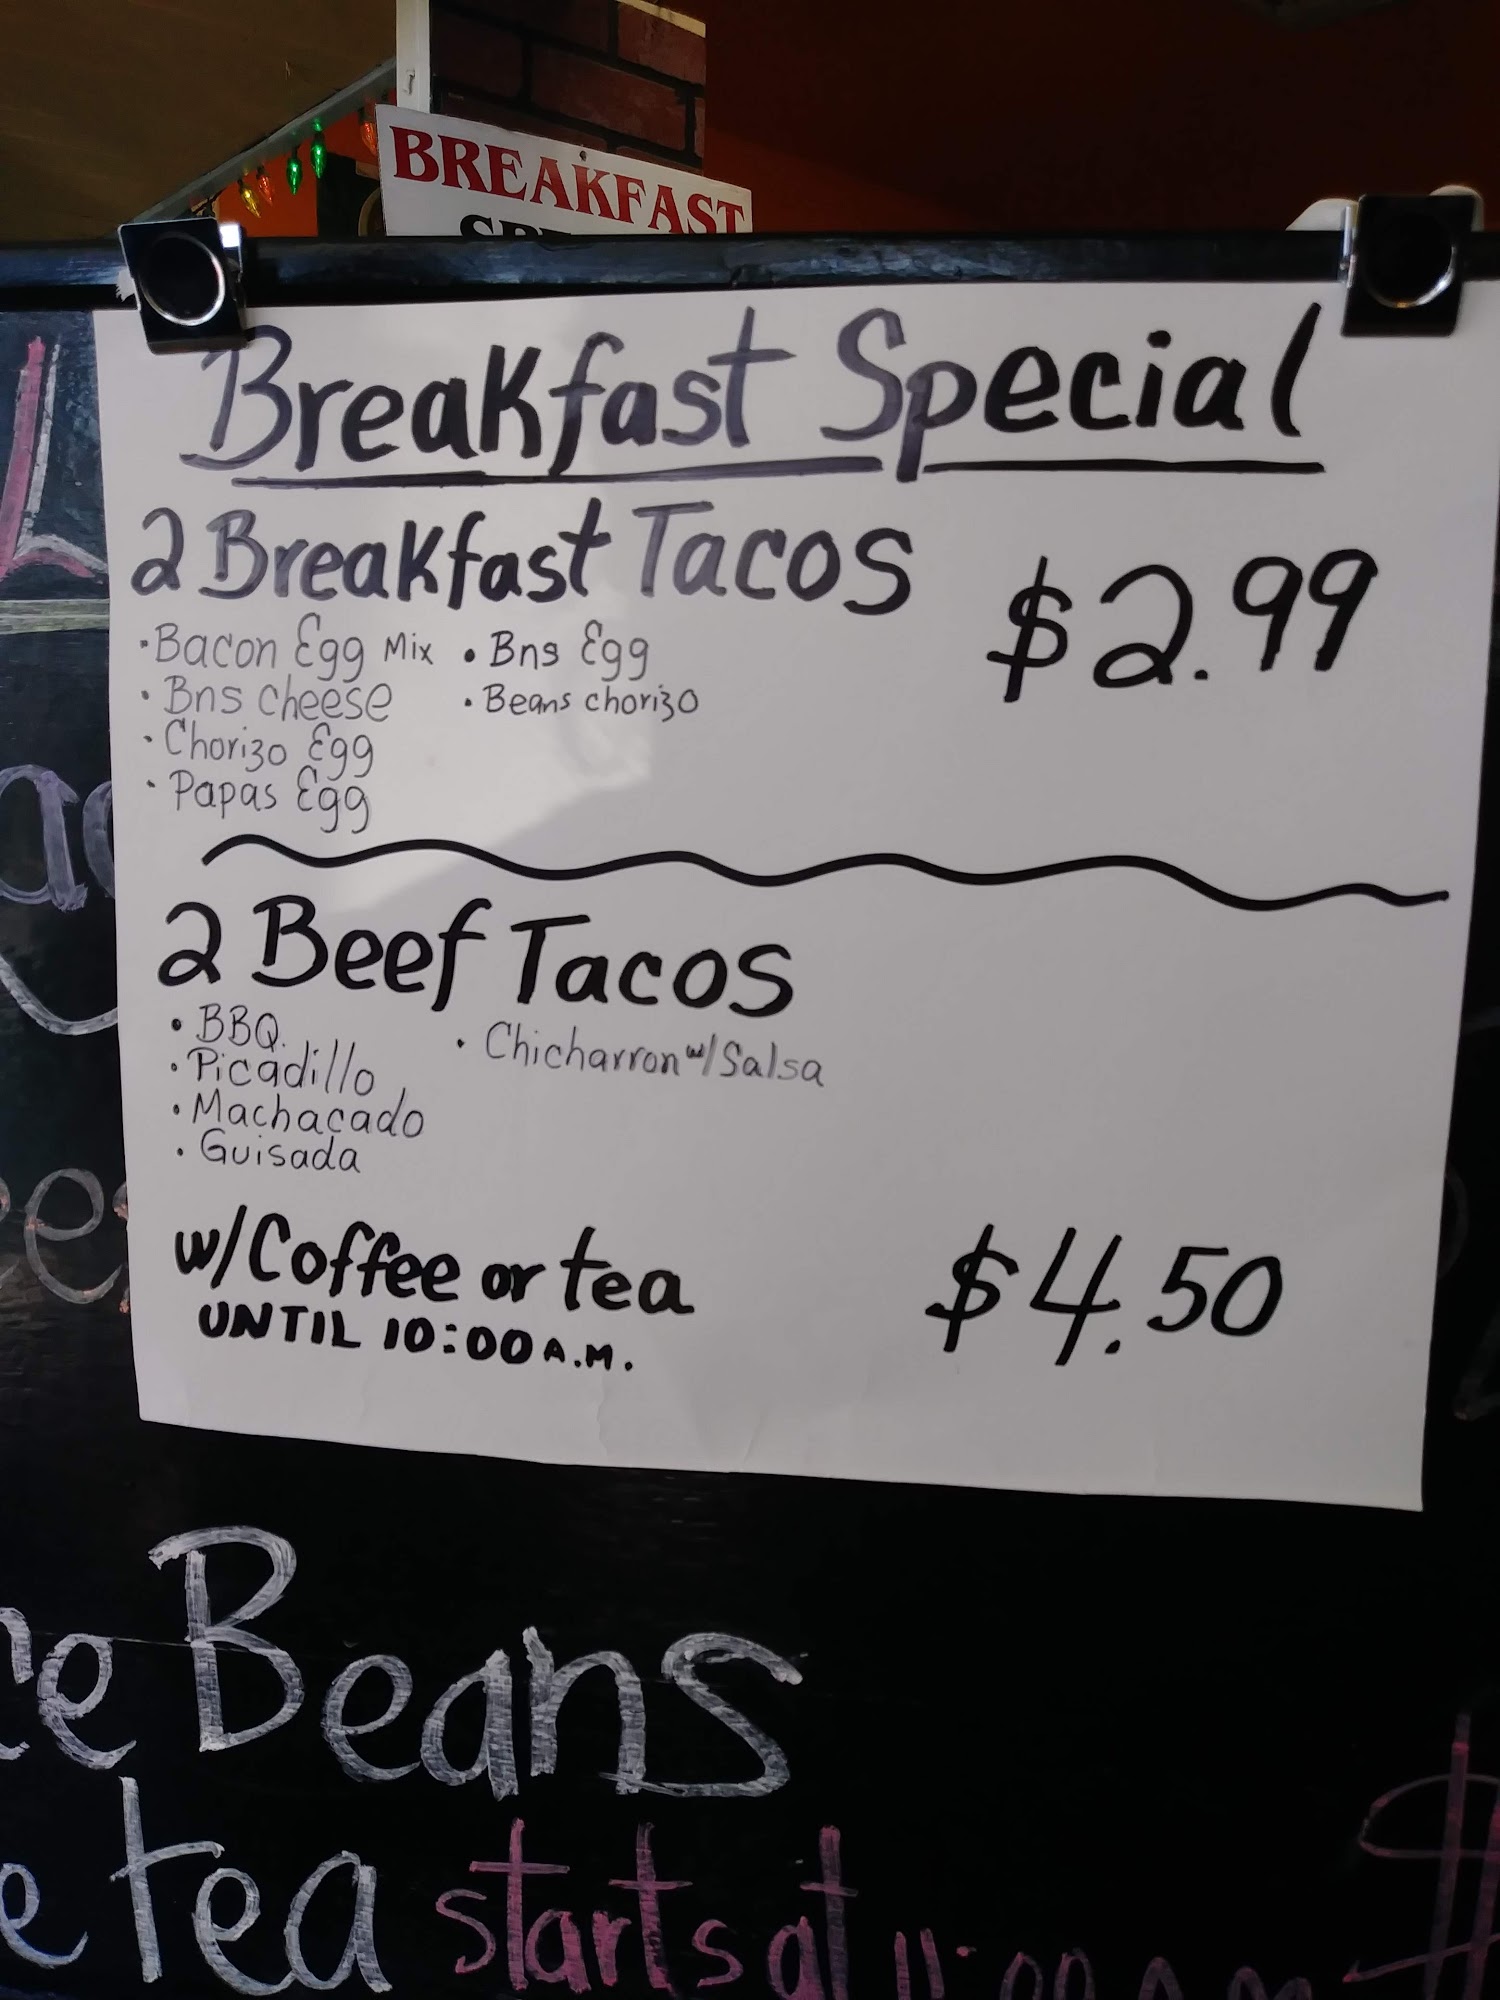 BREAKFAST
Breakfast Special
2 Breakfast Tacos $2.99
• Bacon Egg Mix • Bns Egg
• Bns cheese • Beans chorizo
• Chorizo Egg
• Papas Egg
2 Beef Tacos
• BBQ. • Chicharron w/ Salsa
• Picadillo
• Machacado
• Guisada
w/ Coffee or tea $4.50
UNTIL 10:00 A.M.
Beans
tea starts at 11:00 A.M. $